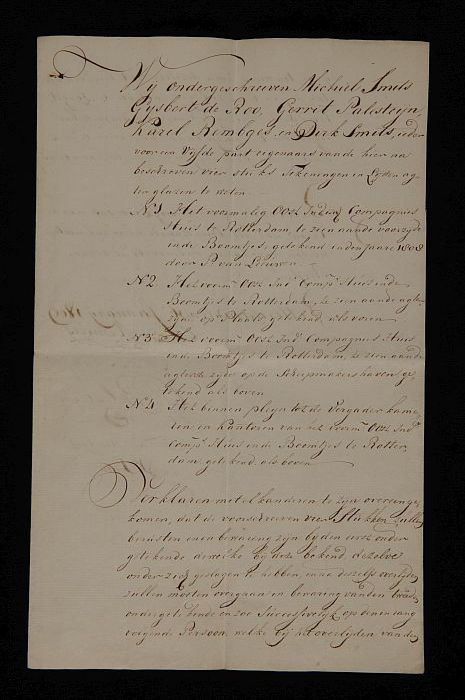 Wij ondergeschreeven Michiel Smits
Gysbert de Roo, Gerrit Palesteyn,
Karel Remtges, en Dirk Smits, ieder
voor een Vyfde part eigenaars van de hier na
beschreven vier stuks Tekeningen in Lysten ag-
ter glazen te weten
N.1 Het voormalig Oost Indisch Compagnies
Huis te Rotterdam, te zien aan de voorzyde
in de Boompjes, getekend in den Jaare 1808
door P. van Leeuwen
N.2 Het voorm. Oost Ind. Comps. Huis in de
Boomtjes te Rotterdam, te zien aan de agter
zyde op Plaats getekend als voren
N.3 Het voorm. Oost Ind. Compagnies Huis
in de Boomtjes te Rotterdam, te zien aan de
agterzyde op de Scheepmakers haven, ge-
tekend als boven
N.4 Het binnen pleyn tot de Vergader kame-
ren, en Kantoren van het voorm. Oost Ind.
Comps. Huis in de Boomtjes te Rotter-
dam getekend als boven
Verklaren met elkanderen te zyn overeenge-
komen, dat de voorschreeven vier Stukken zullen
berusten en in bewaring zyn by den eerst onder-
getekende dewelke by deze bekend dezelve
onder zich geslagen te hebben, en na deszelfs overlyden
zullen moeten overgaan in bewaring van den twede
ondergetekende en zoo Successivelyk op den een lang
volgende Persoon, welke by het overlyden van de